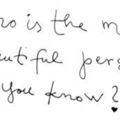 who is the m
eautiful pers
you know?